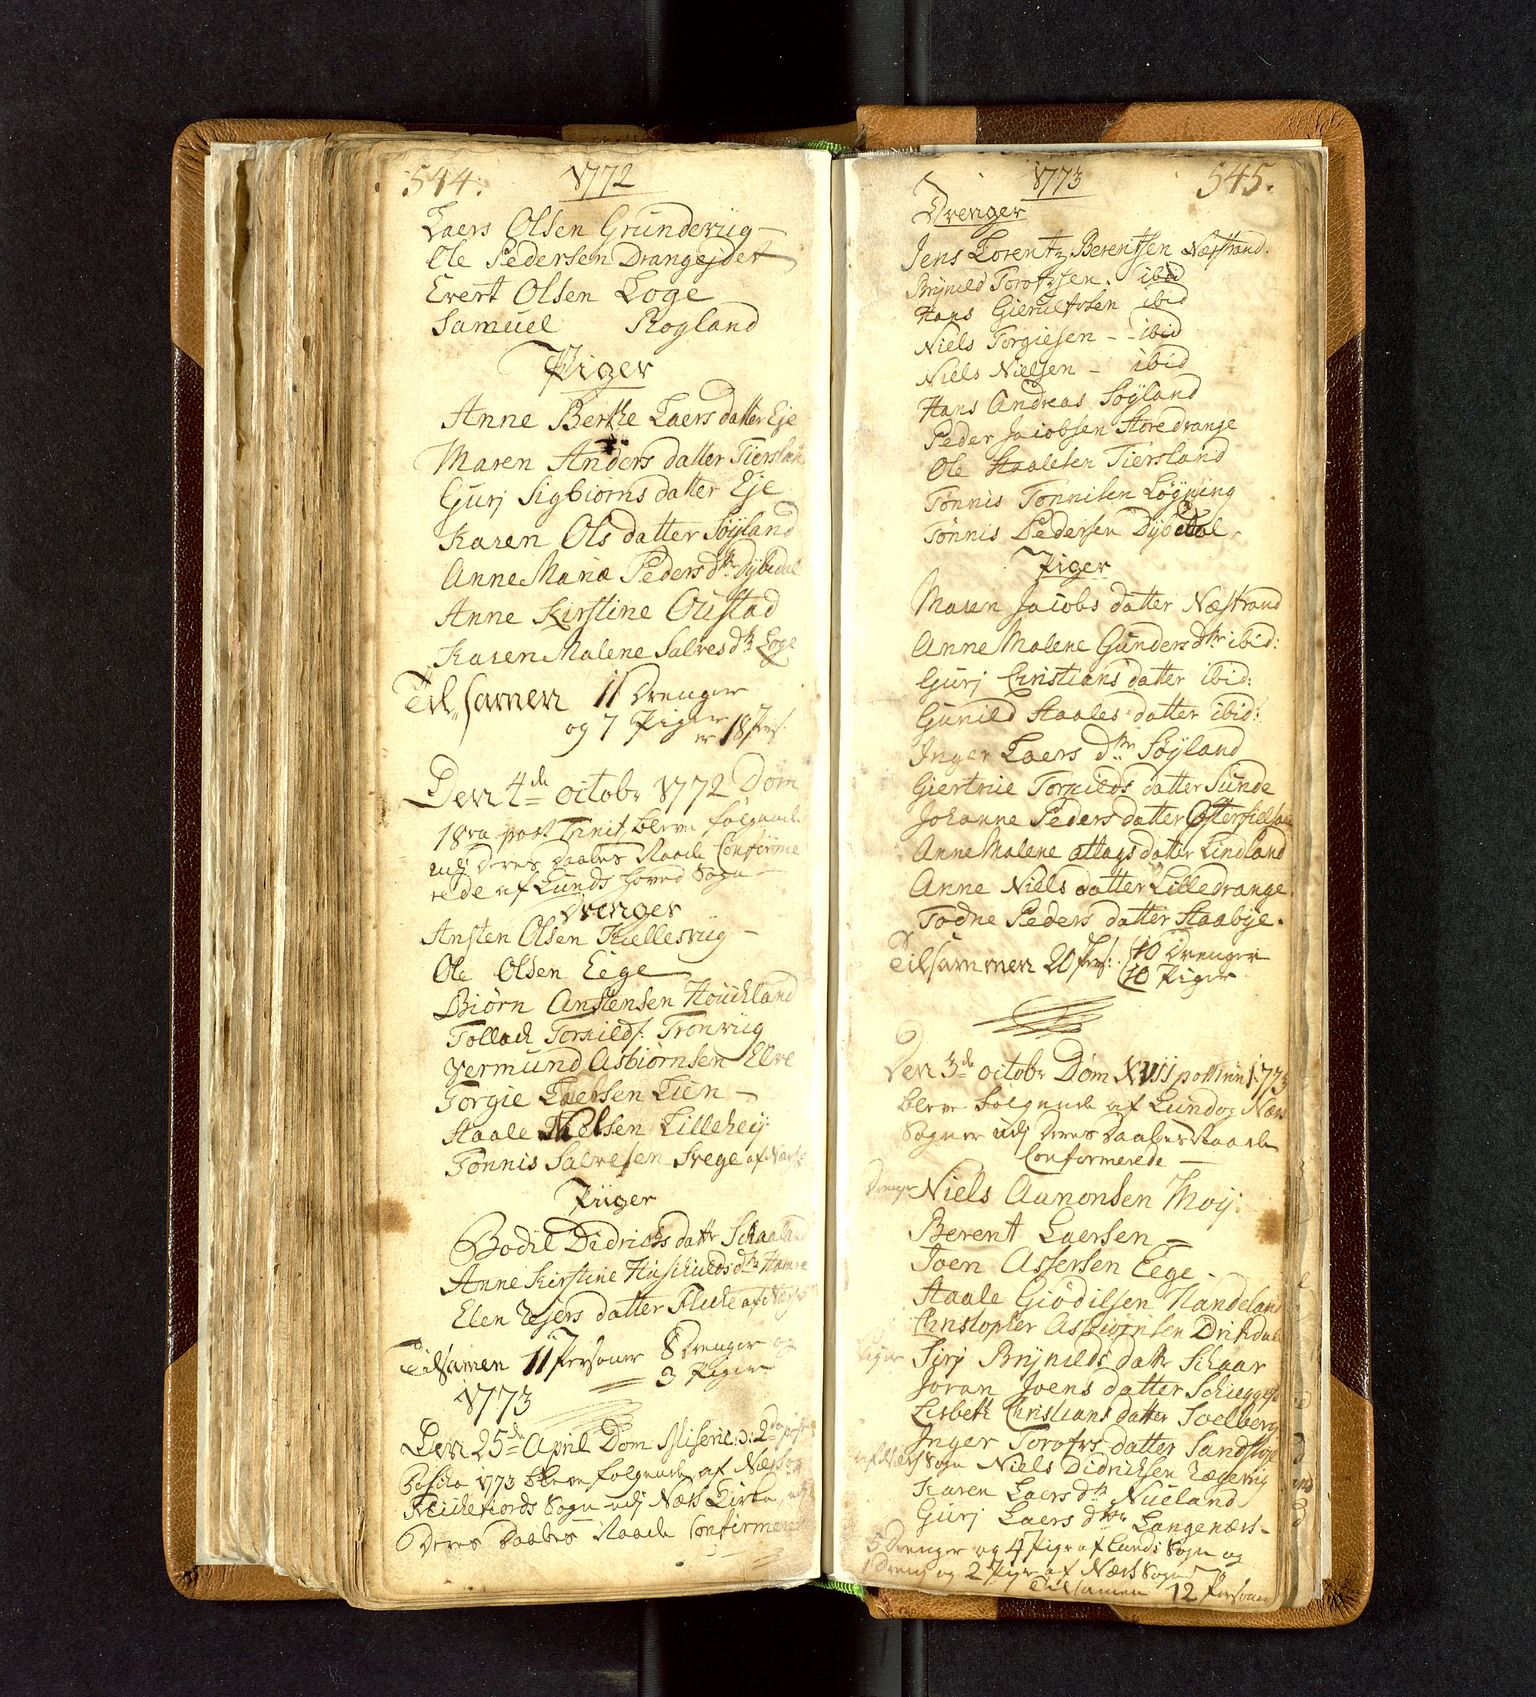 544.
1772
Laers Olsen Grunderiig
Ole Pedersen Drangejdet
Evert Olsen Loge
Samuel Rogland
Piger
Anne Berthe Laers datter Eje
Maren Anders datter Tiersland
Gurj Sigbiørns datter Eje
Karen Ols datter Søyland
Anne Maria Peders dtr Dybedal
Anne Kirstine Oustad
Karen Malene Salves dtr Loge
Tilsamen 11 Drenger
og 7 Piger er 18 Pers.
Den 4de octobr 1772 Dom
18va post Trinit. bleve følgende
udj deres Daabes Naade Confirme
rede af Lunds Hoved Sogn
Drenger
Ansten Olsen Hellesviig
Ole Olsen Eige
Biørn Anstensen Houckland
Tollack Torkilds. Tronviig
Vermund Asbiørnsen Elve
Torgie Laersen Lien
Staale Nielsen Lilleheij
Tønnis Salvesen Frege af
Piger
Bodil Didrichs datr Schaaland
Anne Kirstine Huschulds dtr Hamre
Elen datter Flicke af
Tilsamen 11 Personer 8 Drenger og
3 Piger
1773
Den 25de April Dom Miseric: ɔ: 2den post
Pascha 1773 bleve følgende af Næss og
Fleckefiords Sogn udj Næss Kirke udj
Deres Daabes Naade Confirmerede
1773
545.
Drenger
Jens Lorentz Berentsen Næsstrand.
Brynild Torofsen. ibid
Hans Gierulfsen ibid
Niels Torgiesen - - ibid
Niels Nielsen - ibid
Hans Andreas Søyland
Peder Jacobsen Storedrange
Ole Staalesen Tiersland
Tønnis Tønnisen Løgning
Tønnis Pedersen Dybedal
Piger
Maren Jacobs datter Næstrand
Anne Malene Gunders dtr ibid:
Gurj Christians datter ibid:
Gunild Staales datter ibid:
Inger Laers dtr Søyland
Giertrue Torkilds datter Sunde
Johanne Peders datter
Anne Malene attags datter Lindland
Anne Niels datter Lilledrange.
Todne Peders datter Staabye.
Tilsammen 20 Pers: 10 Drenger
10 Piger
Den 3de octobr Dom XVII post Trin 1773
bleve følgende af Lund og Næss
Sogner udj deres Daabes Naade
Confirmerede
Drenge Niels Aanonsen Moij
Berent Laersen
Joen Assersen Eege
Staale Giødilsen Handeland
Christopher Asbiørnsen Drikdal
Piger Sirj Brynilds datr Schaar
Joran Joens datter
Lisbeth Christians datter Soelberg
Inger Torofs datter Sandstøl
af Næss Sogn Niels Didrichsen Ægeviig
Karen Laers dtr Nueland
Gurj Laers dtr Langenæss
5 Drenger og 4 Piger af Lunds Sogn og
1 Dreng og 2 Piger af Næss Sogn
Tilsamen 12 Personer